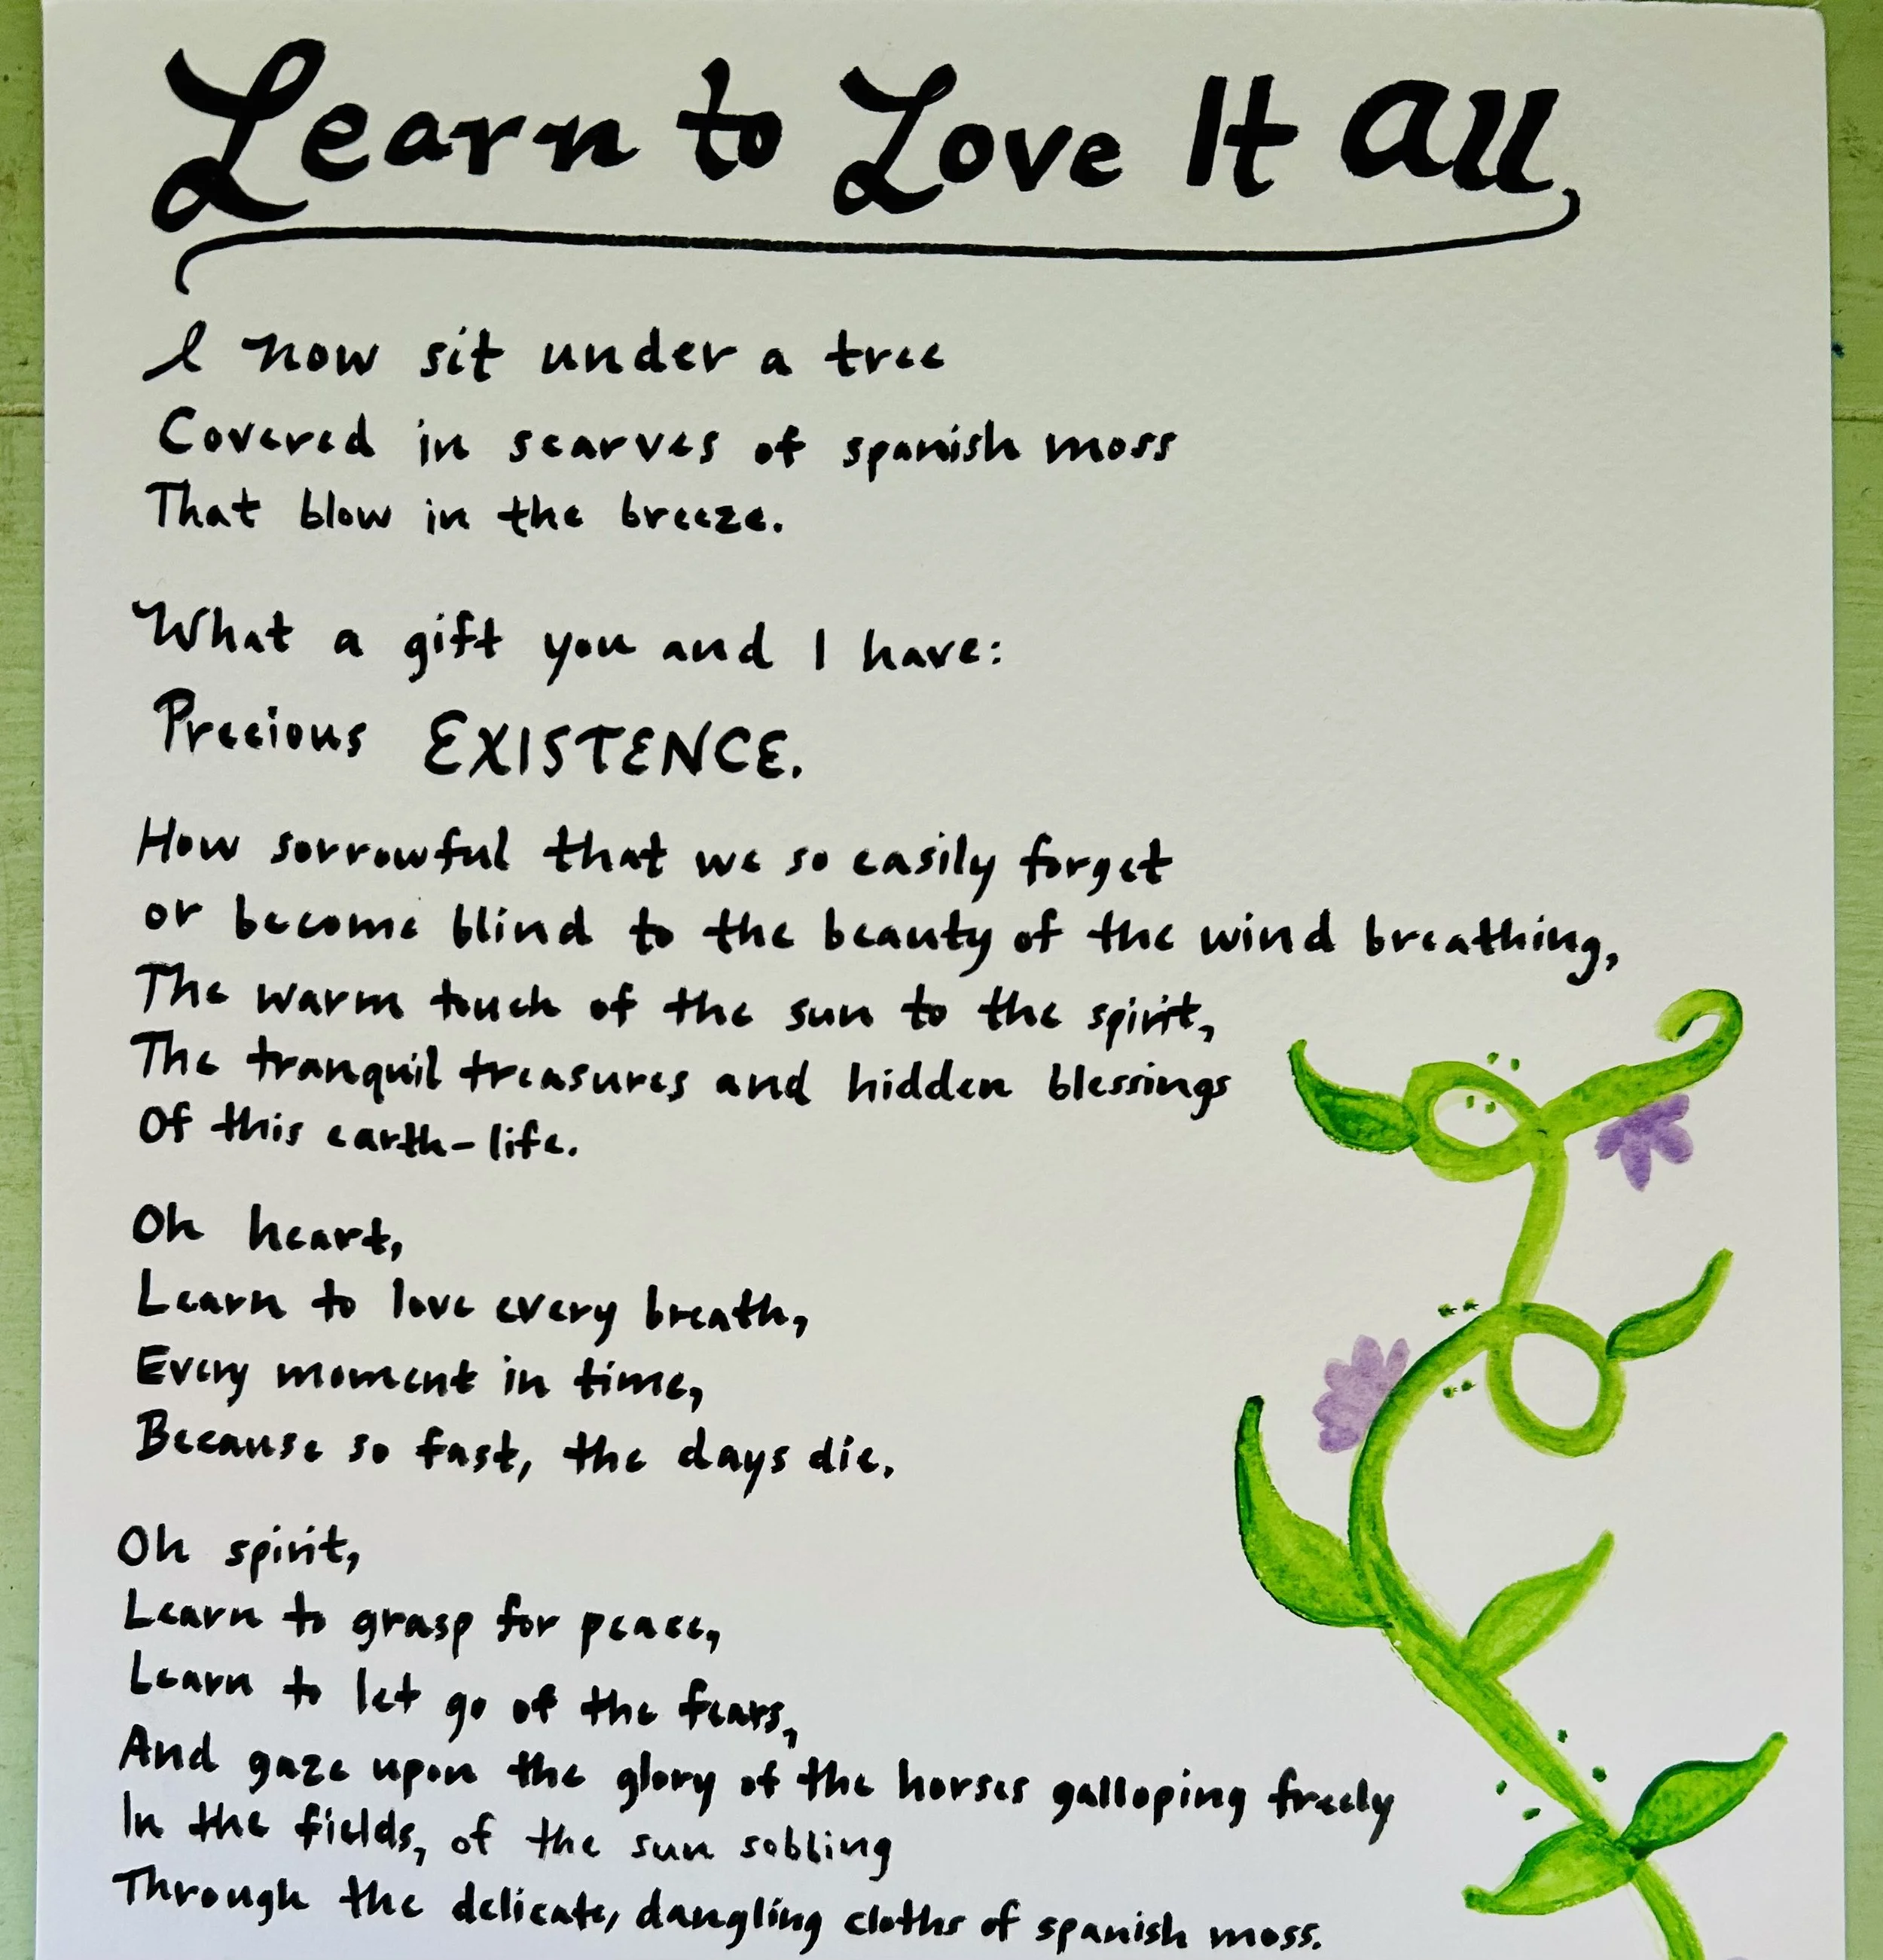 Learn to Love It All,
I now sit under a tree
Covered in scarves of spanish moss
That blow in the breeze.
What a gift you and I have:
Precious EXISTENCE.
How sorrowful that we so easily forget
or become blind to the beauty of the wind breathing,
The warm touch of the sun to the spirit,
The tranquil treasures and hidden blessings
Of this earth-life.
Oh heart,
Learn to love every breath,
Every moment in time,
Because so fast, the days die.
Oh spirit,
Learn to grasp for peace,
Learn to let go of the fears,
And gaze upon the glory of the horses galloping freely
In the fields, of the sun sobbing
Through the delicate, dangling cloths of spanish moss.